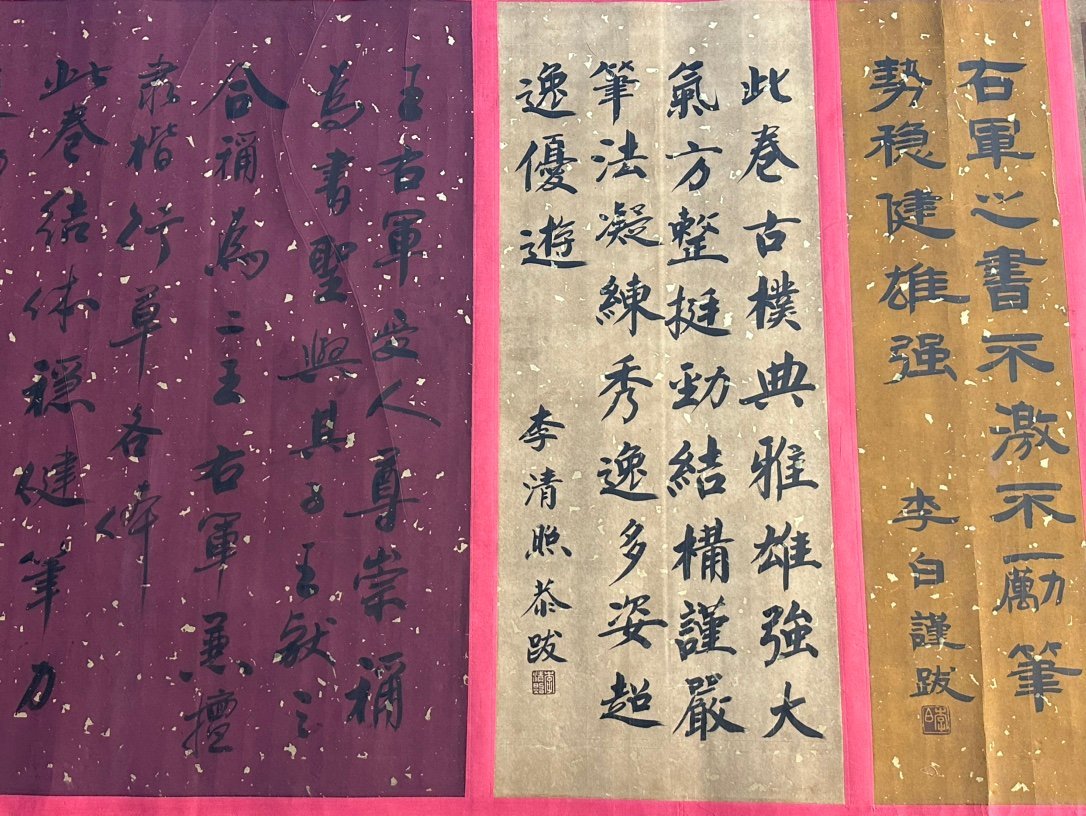 右軍之書不激不勵筆
勢稳健雄强
李白謹跋
李白
此卷古樸典雅雄強大
氣方整挺勁結構謹嚴
筆法凝練秀逸多姿超
逸優遊
李清照恭跋
李清照
王右軍受人尊崇稱
為書聖與其子王献之
合稱為二王右軍兼擅
隶楷行草各
此卷结体穩健筆力